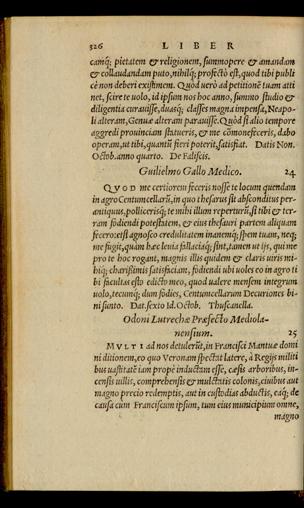 326 LIBER
camq́; pietatem & religionem, summopere & amandam
& collaudandam puto, nihilq́; profectò est, quod tibi publi
cè non deberi existimem. Quòd uerò ad petitionē tuam atti
net, scire te uolo, id ipsum nos hoc anno, summo studio &
diligentia curauisse, duasq́; classes magna impensa, Neapo-
li alteram, Genuæ alteram parauisse. Quòd si alio tempore
aggredi prouinciam statueris, & me cōmonefeceris, dabo
operam, ut tibi, quantū fieri poterit, satisfiat. Datis Non.
Octob. anno quarto. De Faliscis.
Guilielmo Gallo Medico. 24
QVOD me certiorem feceris nosse te locum quendam
in agro Centumcellarū, in quo thesarus sit absconditus per-
antiquus, pollicerisq́; te mihi illum reperturū, si tibi & ter-
ram fodiendi potestatem, & eius thesauri partem aliquam
fecero: etsi agnosco credulitatem inanemq́; spem tuam, neq;
me fugit, quàm hæc leuia fallaciaq́; sint, tamen ut ijs, qui me
pro te hoc rogant, magnis illis quidem & claris uiris mi-
hiq́; charißimis satisfaciam, fodiendi ubi uoles eo in agro ti
bi facultas esto edicto meo, quod ualere mensem integrum
uolo, tecumq́; dum fodies, Centumcellarum Decuriones bi-
ni sunto. Dat. sexto id. Octob. Thuscanella.
Odoni Lutrechæ Præfecto Mediola-
nensium. 25
MVLTI ad nos detulerūt, in Francisci Mantuæ domi
ni ditionem, ea quo Veronam spectat latere, à Regijs militi
bus uastitatē iam propè inductam esse, cæsis arboribus, in-
censis uillis, comprehensis & mulctatis colonis, ciuibus aut
magno precio redemptis, aut in custodias abductis, eaq́; de
causa cum Franciscum ipsum, tum eius municipium omne,
magno